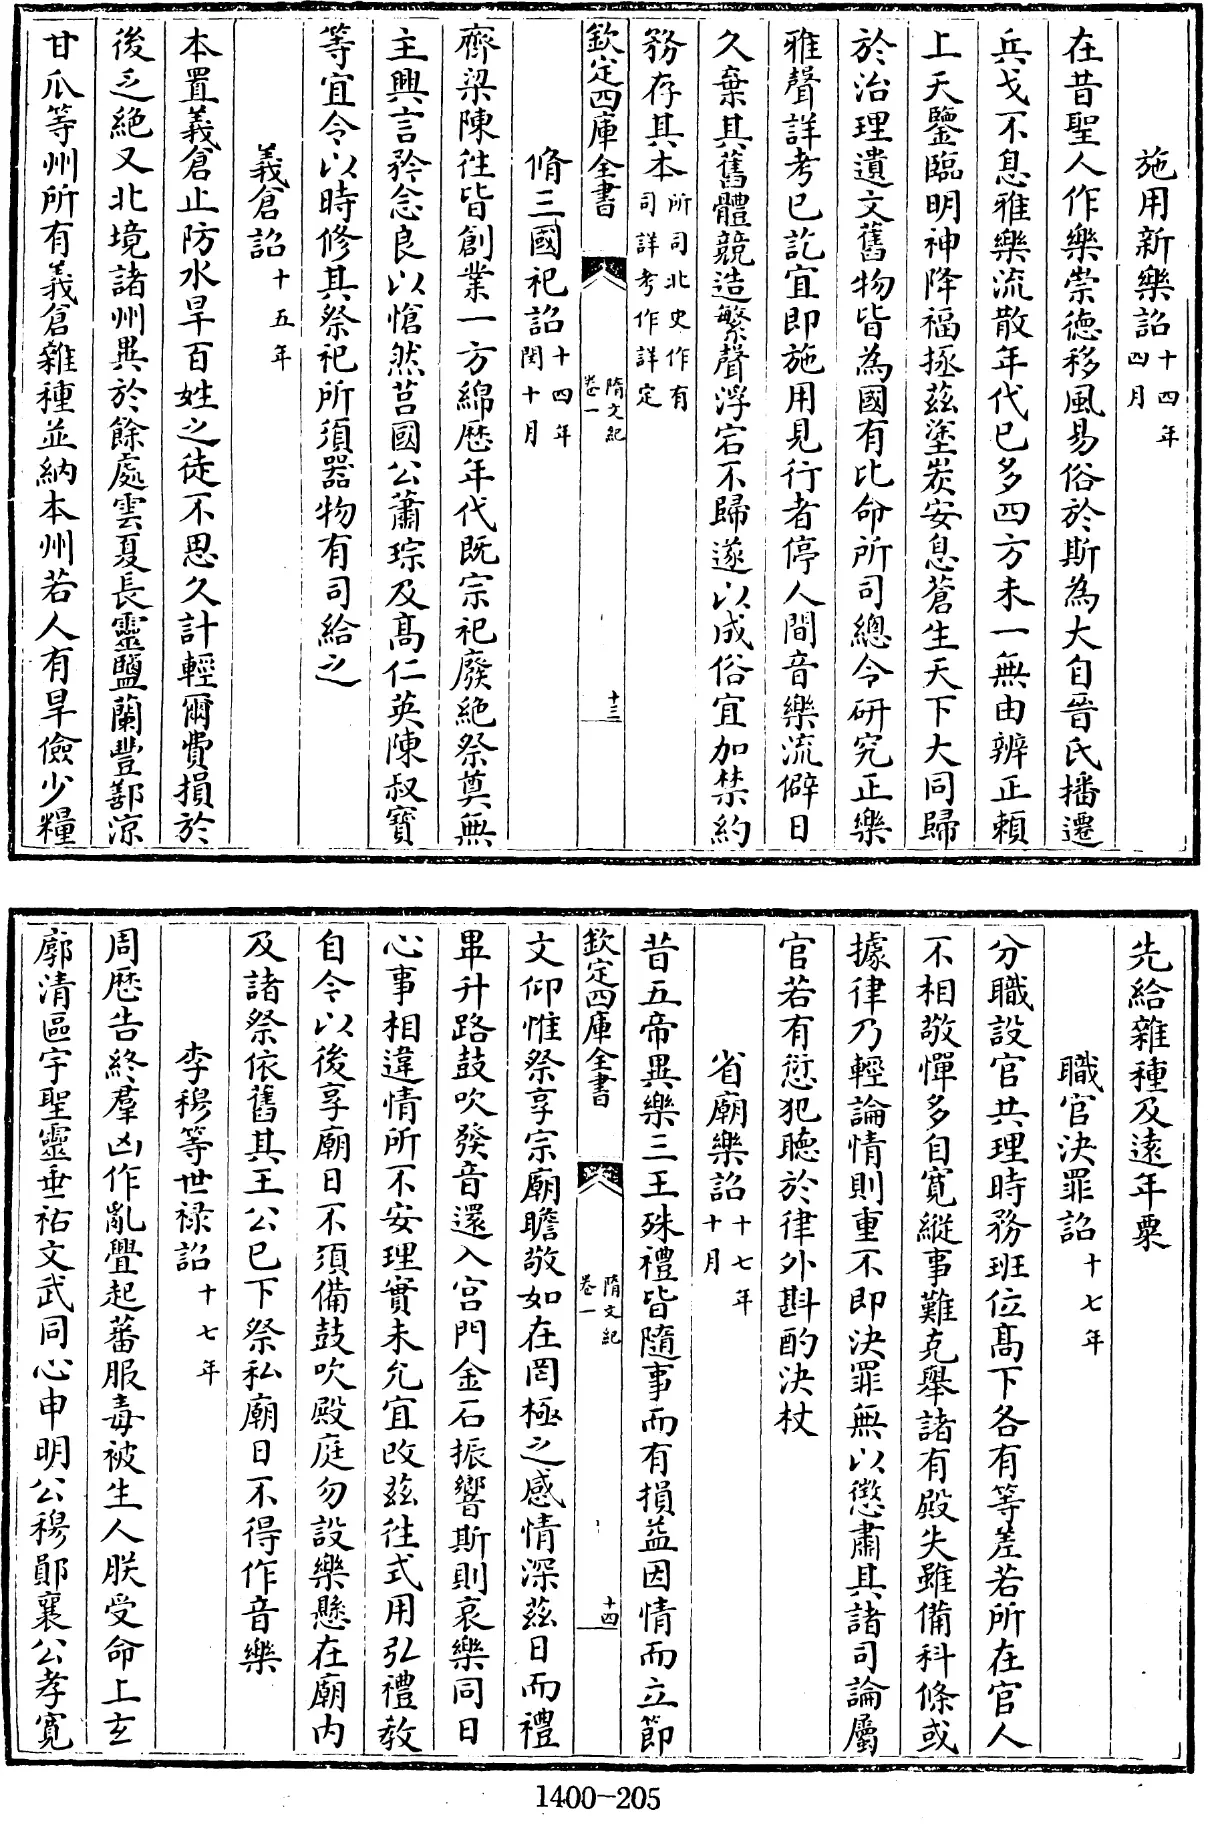 施用新樂詔十四年四月
在昔聖人作樂崇德移風易俗於斯為大自晉氏播遷
兵戈不息雅樂流散年代已多四方未一無由辨正賴
上天鑒臨明神降福拯茲塗炭安息蒼生天下大同歸
於治理遺文舊物皆為國有比命所司總令研究正樂
雅聲詳考已訖宜即施用見行者停人間音樂流僻日
久棄其舊體競造繁聲浮宕不歸遂以成俗宜加禁約
務存其本所司北史作有司詳考作詳定
欽定四庫全書 隋文紀卷一 十三
脩三國祀詔十四年閏十月
齊梁陳往皆創業一方綿歷年代既宗祀廢絕祭奠無
主興言矜念良以愴然莒國公蕭琮及高仁英陳叔寶
等宜令以時修其祭祀所須器物有司給之
義倉詔十五年
本置義倉止防水旱百姓之徒不思久計輕爾費損於
後乏絕又北境諸州異於餘處雲夏長靈鹽蘭豐鄯涼
甘瓜等州所有義倉雜種並納本州若人有旱儉少糧
先給雜種及遠年粟
職官決罪詔十七年
分職設官共理時務班位高下各有等差若所在官人
不相敬憚多自寬縱事難克舉諸有殿失雖備科條或
據律乃輕論情則重不即決罪無以懲肅其諸司論屬
官若有愆犯聽於律外斟酌決杖
省廟樂詔十七年十月
昔五帝異樂三王殊禮皆隨事而有損益因情而立節
欽定四庫全書 隋文紀卷一 十四
文仰惟祭享宗廟瞻敬如在罔極之感情深茲日而禮
畢升路鼓吹發音還入宮門金石振響斯則哀樂同日
心事相違情所不安理實未允宜改茲往式用弘禮教
自今以後享廟日不須備鼓吹殿庭勿設樂懸在廟內
及諸祭依舊其王公已下祭私廟日不得作音樂
李穆等世祿詔十七年
周歷告終羣凶作亂釁起蕃服毒被生人朕受命上玄
廓清區宇聖靈垂祐文武同心申明公穆鄖襄公孝寬
1400-205